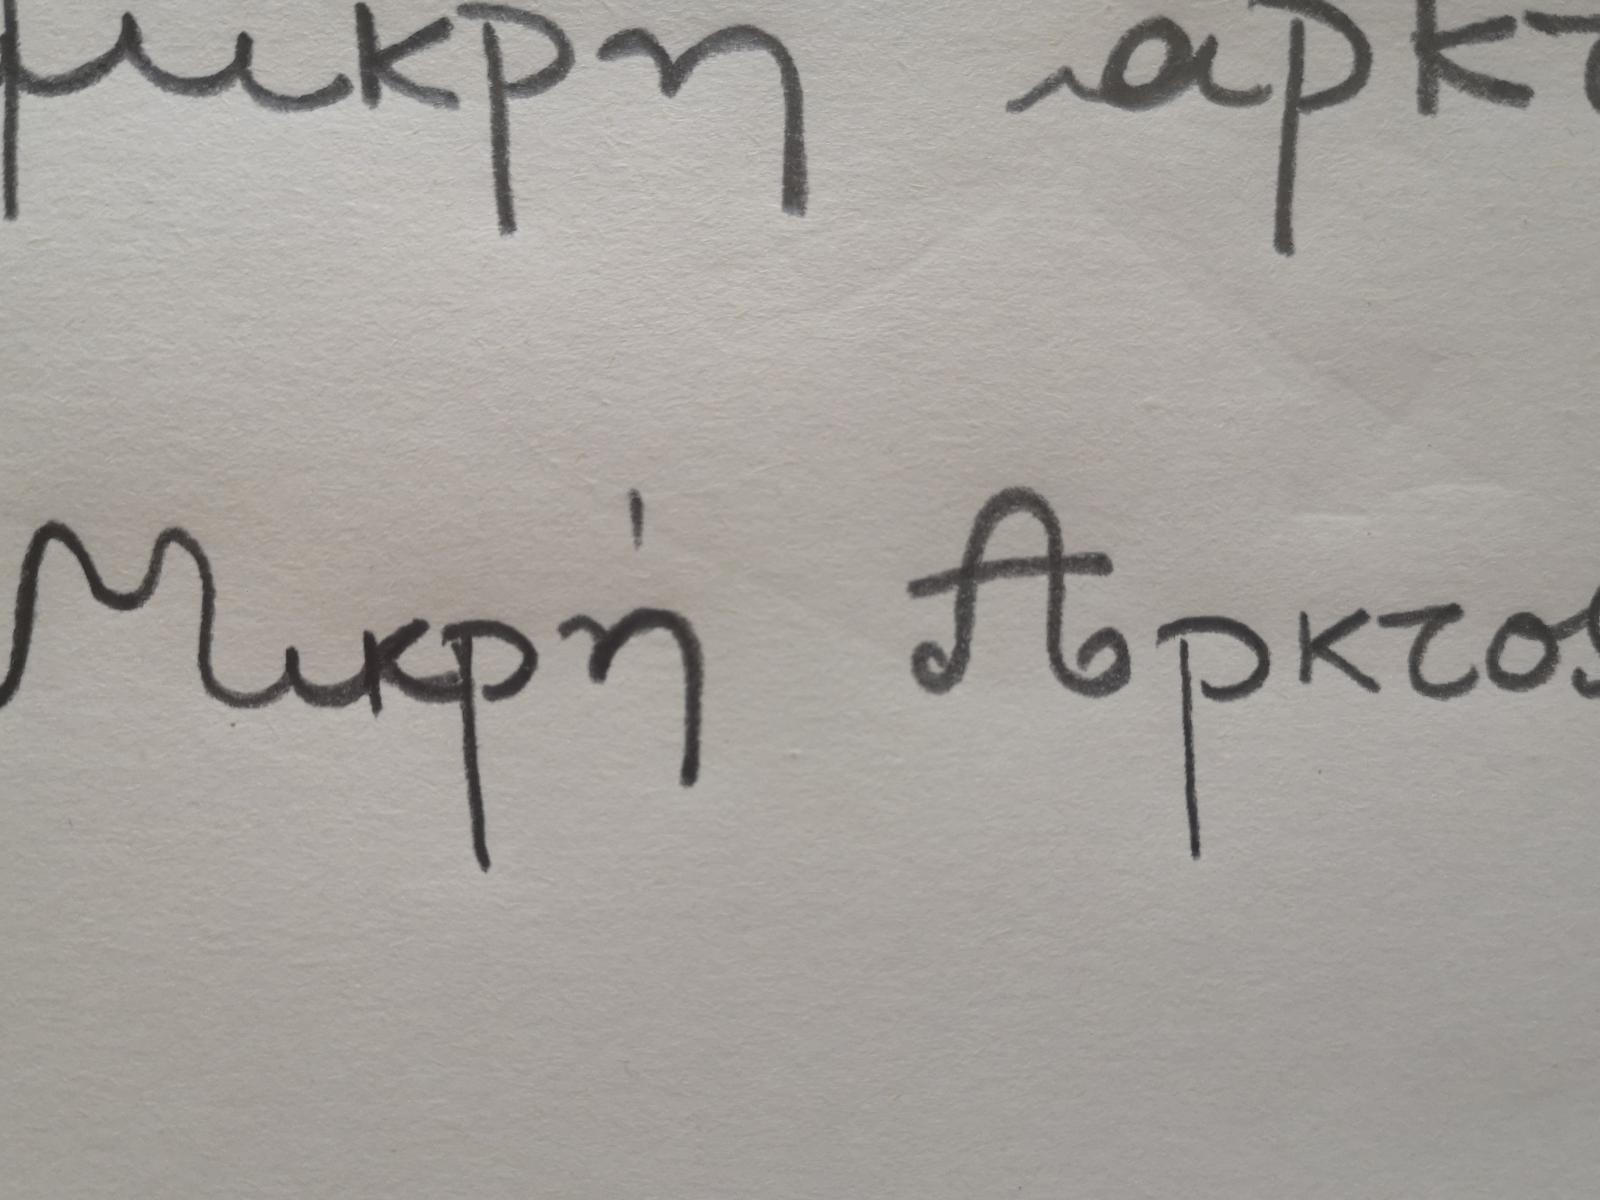 μικρη αρκτ
Μικρή Αρκτος